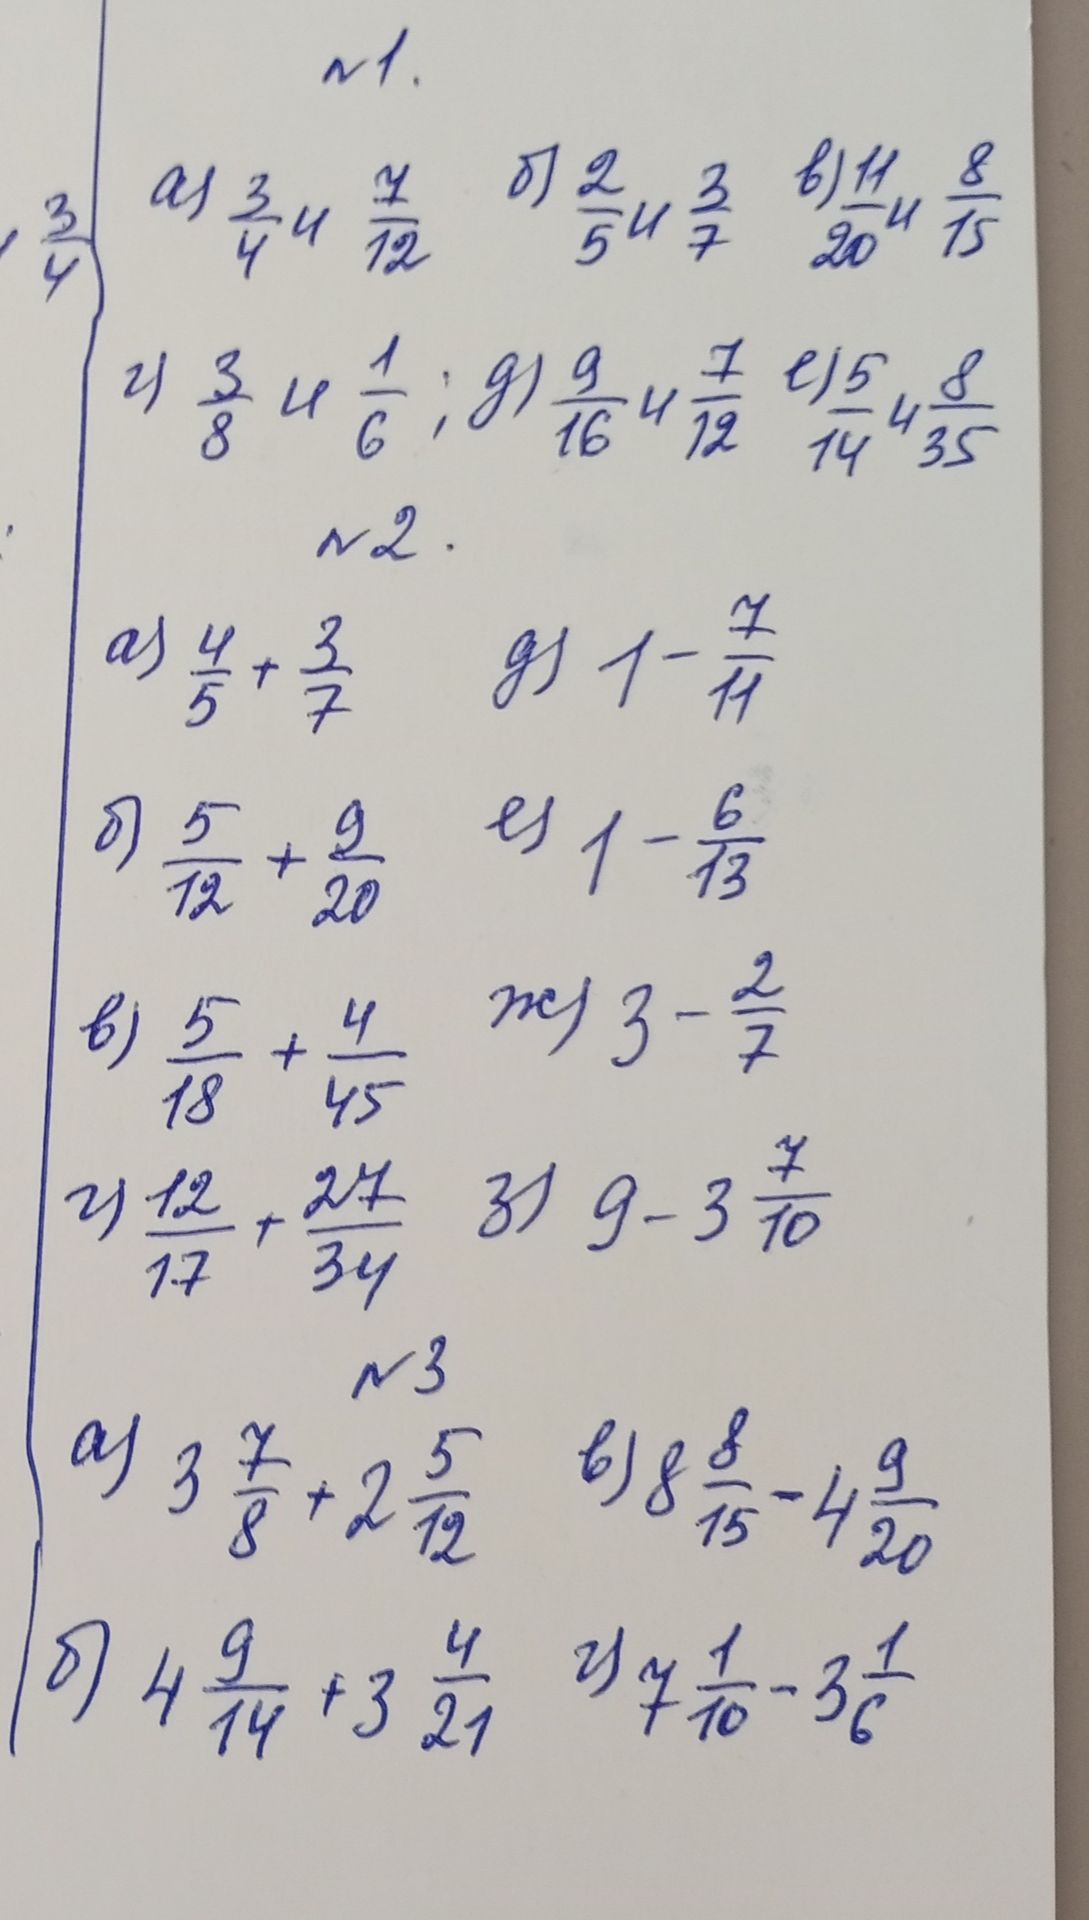 3/4
№1.
а) 3/4 и 7/12 б) 2/5 и 3/7 в) 11/20 и 8/15
г) 3/8 и 1/6 ; д) 9/16 и 7/12 е) 5/14 и 8/35
№2.
а) 4/5 + 3/7 д) 1 - 7/11
б) 5/12 + 9/20 е) 1 - 6/13
в) 5/18 + 4/45 ж) 3 - 2/7
г) 12/17 + 27/34 з) 9 - 3 7/10
№3
а) 3 7/8 + 2 5/12 в) 8 8/15 - 4 9/20
б) 4 9/14 + 3 4/21 г) 7 1/10 - 3 1/6